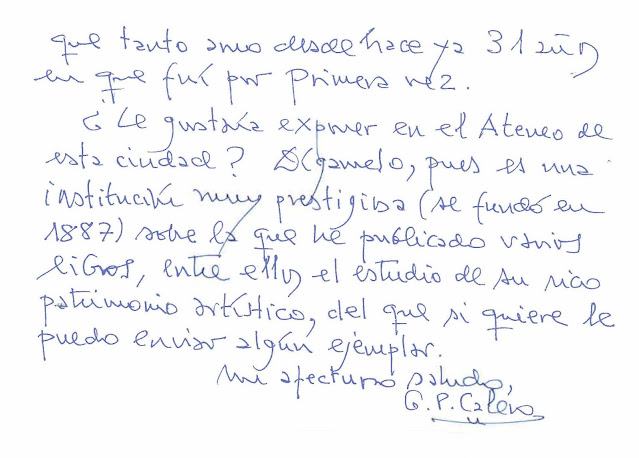 que tanto amo desde hace ya 31 años
en que fuí por primera vez.
¿Le gustaría exponer en el Ateneo de
esta ciudad? Dígamelo, pues es una
institución muy prestigiosa (se fundó en
1887) sobre la que he publicado varios
libros, entre ellos el estudio de su rico
patrimonio artístico, del que si quiere le
puedo enviar algún ejemplar.
Mi afectuoso saludo,
G. P. Calero